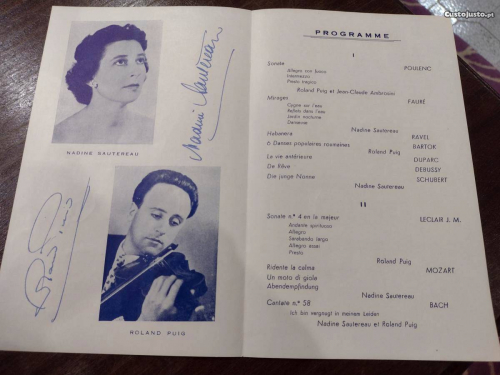 CustoJusto.pt
Nadine Sautereau
NADINE SAUTEREAU
ROLAND PUIG
PROGRAMME
I
Sonate POULENC
Allegro con fuoco
Intermezzo
Presto tragico
Roland Puig et Jean-Claude Ambrosini
Mirages FAURÉ
Cygne sur l'eau
Reflets dans l'eau
Jardin nocturne
Danseuse
Nadine Sautereau
Habanera RAVEL
6 Danses populaires roumaines BARTOK
Roland Puig
La vie antérieure DUPARC
De Rêve DEBUSSY
Die junge Nonne SCHUBERT
Nadine Sautereau
II
Sonate n.° 4 en la majeur LECLAIR J. M.
Andante spirituoso
Allegro
Sarabanda largo
Allegro assai
Presto
Roland Puig
Ridente la calma MOZART
Un moto di gioia
Abendempfindung
Nadine Sautereau
Cantate n.° 58 BACH
Ich bin vergnügt in meinem Leiden
Nadine Sautereau et Roland Puig